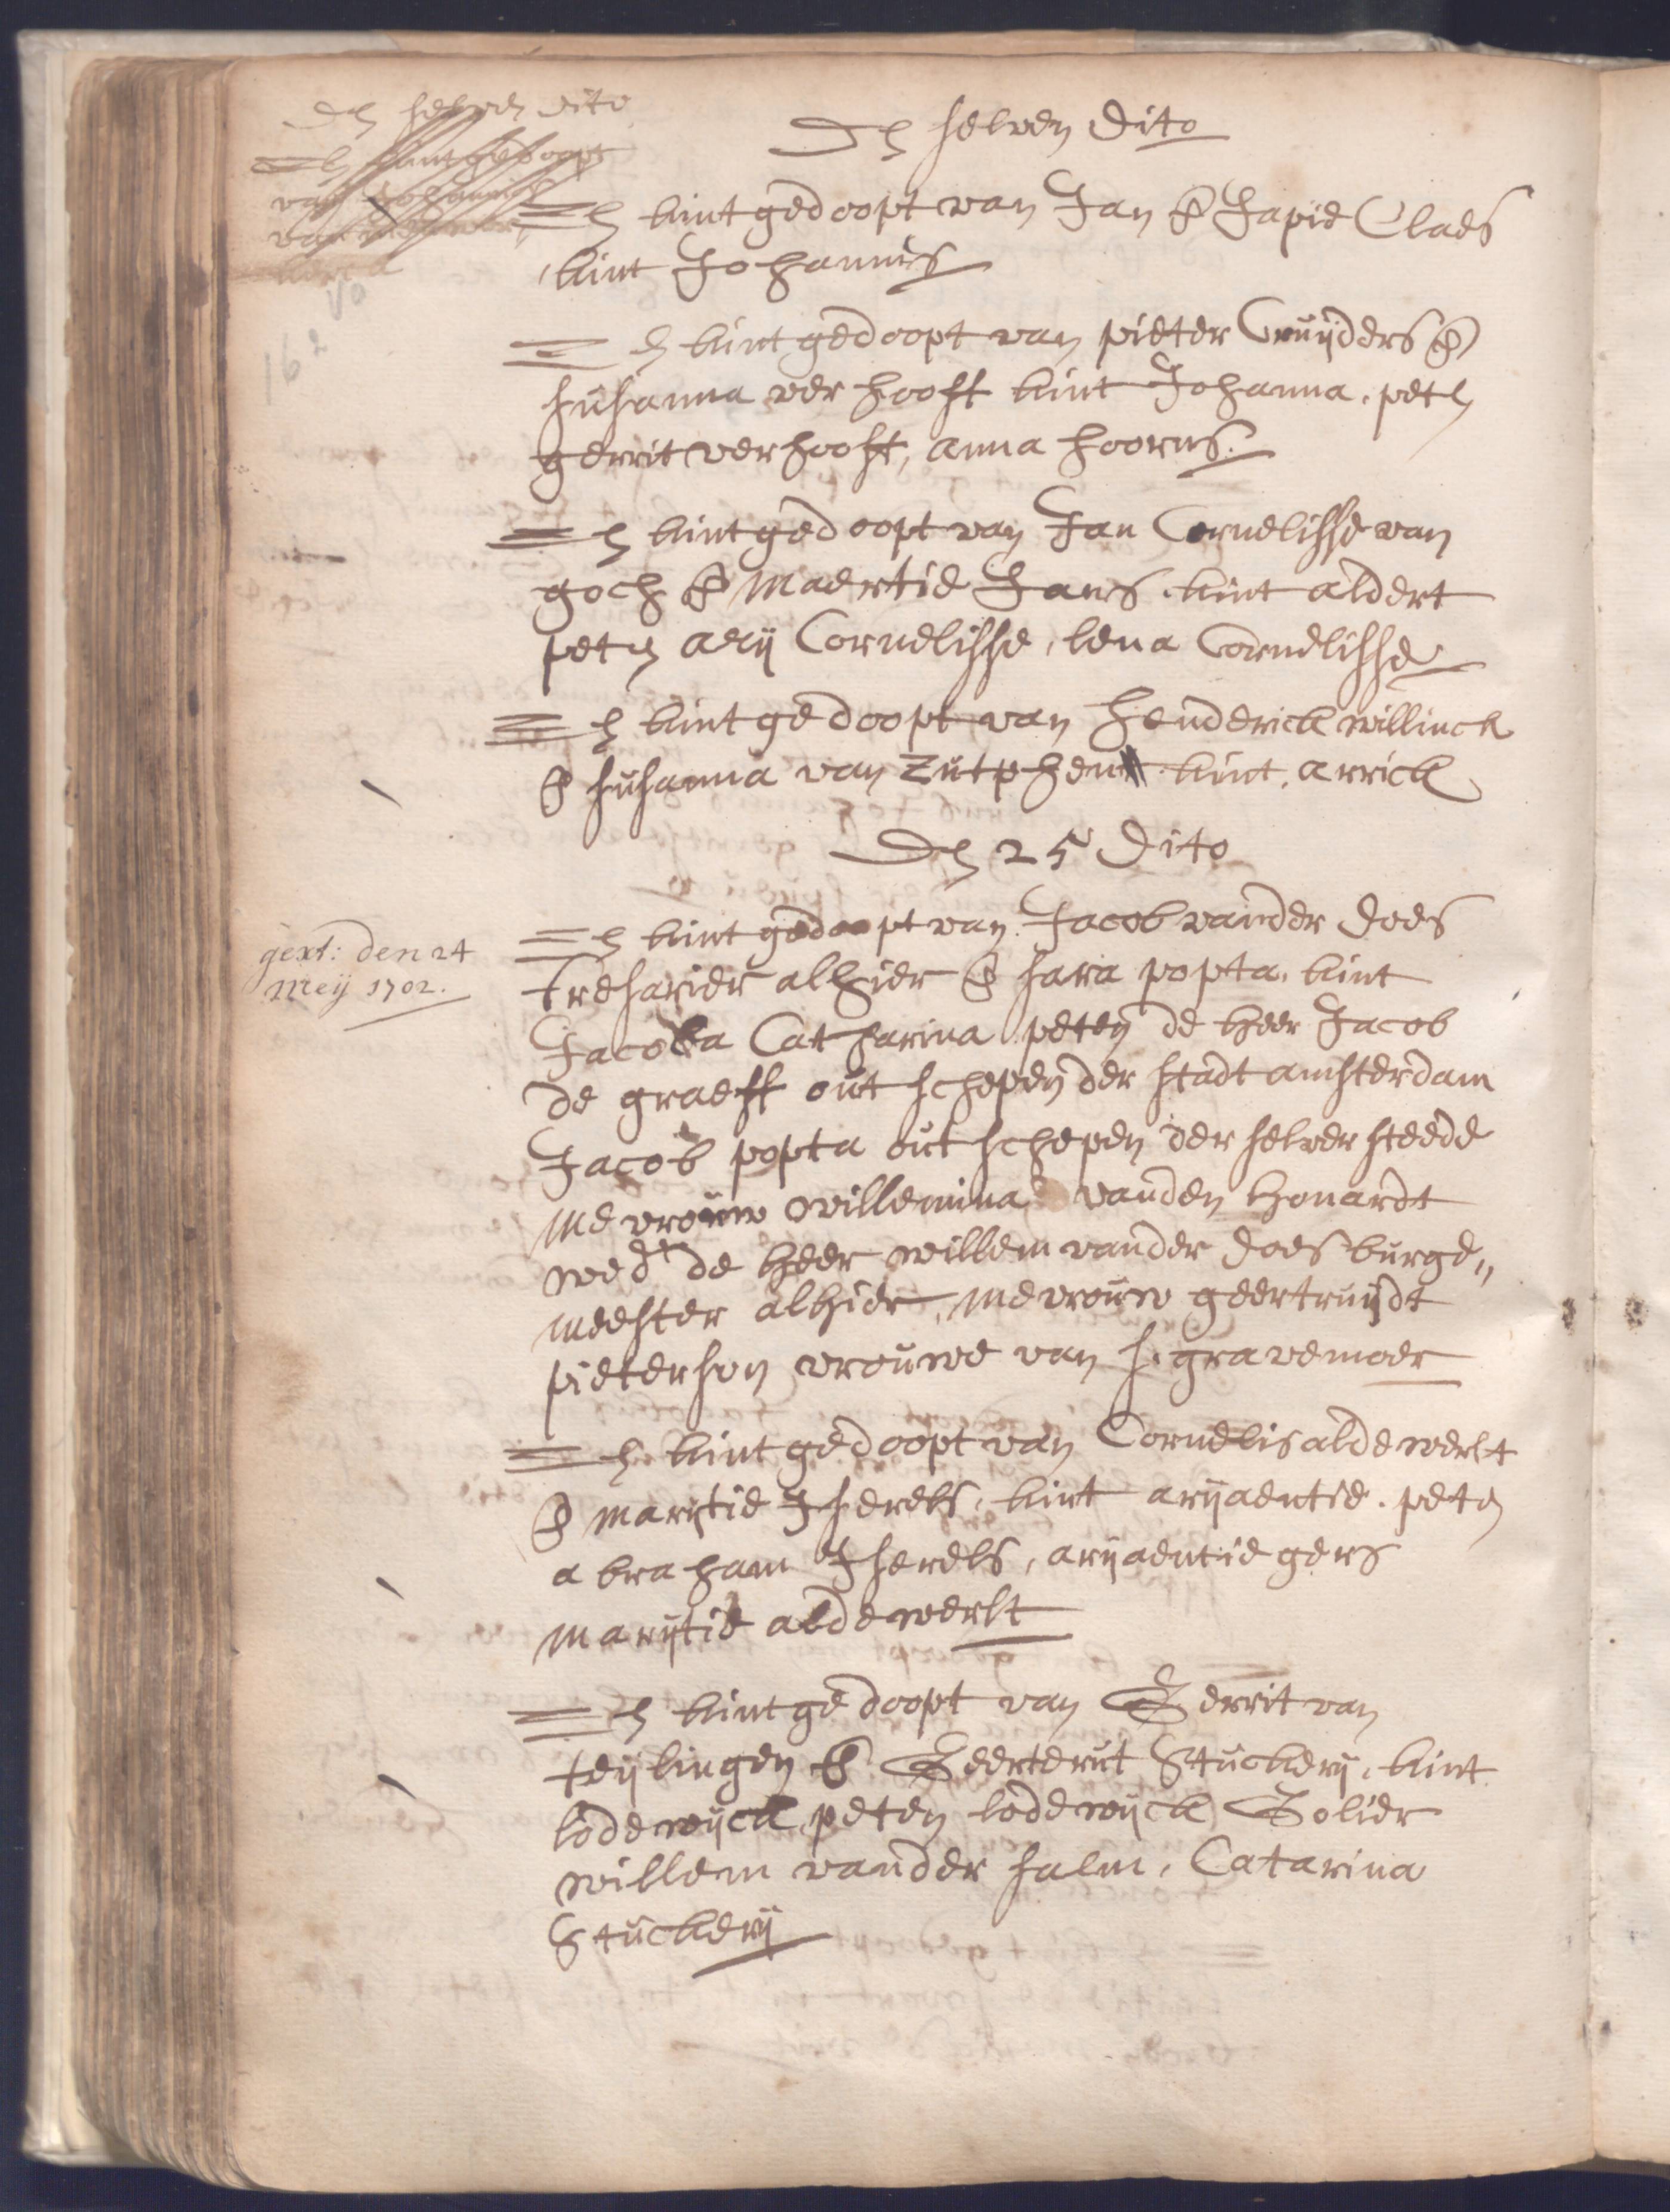 den selven dito
Den selven Dito
Een kint gedoopt van Jan & Japie Claes
kint Johannis
Een kint gedoopt van pieter Cruijders &
susanna ver hooft kint Johanna, peten
gerrit verhooft, anna hoorns.
Een kint gedoopt van Jan Cornelisse van
goch & Maertie Jans kint aldert
peten arij Cornelisse, lena Cornelisse
Een kint gedoopt van henderick willinck
& susanna van Zutphen kint, arrick
Den 25 Dito
gext: den 24
Meij 1702.
Een kint gedoopt van Jacob vander Does
tresarier alhier & sara popta, kint
Jacoba Catharina peten de heer Jacob
de graeff out schepen der stadt amsterdam
Jacob popta out schepen der selver steede
Mevrouw willemina vanden honardt
wedt de heer willem vander does burge„
meester alhier, Mevrouw geertruijdt
pieterson vrouwe van s. gravemoer
Een kint gedoopt van Cornelis aldewerlt
& marijtie Jserels, kint arijaentie. peten
abraham Jserels, arijaentie gers
marijtie aldewerlt
Een kint gedoopt van Gerrit van
teijlingen & Geerterut Stuckerij, kint
lodewijck, peten lodewijck Golier
willem vander salm, Catarina
Stuckerij